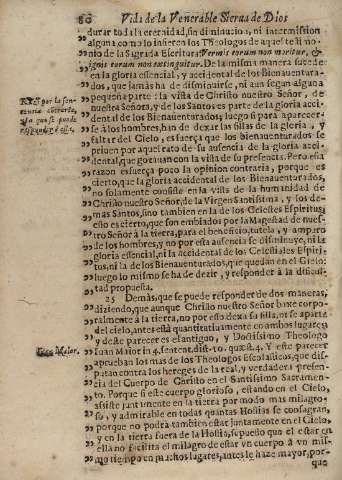 80 Vida de la Venerable Sierva de Dios
durar toda la eternidad, sin diminucion, ni intermission
alguna como lo infieren los Theologos de aquel testimo-
nio de la Sagrada Escritura, Vermis eorum non moritur, &
ignis eorum non extinguitur. De la misma manera sucede
en la gloria essencial, y accidental de los Bienaventura-
dos, que jamàs ha de disminuirse, ni aun segun alguna
pequeña parte: la vista de Christo nuestro Señor, de
nuestra Señora, y de los Santos es parte de la gloria acci-
dental de los Bienaventurados; luego si para aparecer-
se à los hombres, han de dexar las sillas de la gloria, y
faltar del Cielo, es fuerça que los bienaventurados se
priven por aquel rato de su ausencia de la gloria acci-
dental, que gozavan con la vista de su presencia. Pero esta
razon esfuerça poco la opinion contraria, porque es
cierto, que la gloria accidental de los Bienaventurados,
no solamente consiste en la vista de la humanidad de
Christo nuestro Señor, de la Virgen Santissima, y los de-
mas Santos, sino tambien en la de los Celestes Espiritus;
esto es cierto, que son embiados por la Magestad de nues-
tro Señor à la tierra, para el beneficio, tutela, y amparo
de los hombres, y no por esta ausencia se disminuye, ni la
gloria essencial, ni la accidental de los Celestiales Espiri-
tus, ni la de los Bienaventurados, que quedan en el Cielo:
luego lo mismo se ha de dezir, y responder à la dificul-
tad propuesta.
25 Demàs, que se puede responder de dos maneras,
diziendo, que aunque Christo nuestro Señor baxe corpo-
ralmente à la tierra, no por esso dexa su silla, ni se aparta
del cielo, antes està quantitativamente en ambos lugares,
Ioan. Maior. y deste parecer es el antiguo, y Doctissimo Theologo
Juan Maior in 4. sentent. dist. 10. quæst. 4. Y este parecer
aprueban los mas de los Theologos Escolasticos, que dis-
putan contra los hereges de la real, y verdadera presen-
cia del Cuerpo de Christo en el Santissimo Sacramen-
to. Porque si este cuerpo glorioso, estando en el Cielo,
assiste juntamente en la tierra por modo mas milagro-
so, y admirable en todas quantas Hostias se consagran,
porque no podra tambien estar juntamente en el Cielo,
y en la tierra fuera de la Hostia, supuesto que el estar en
ella facilita el milagro de estar vn cuerpo à vn mis-
mo tiempo en muchos lugares, antes le haze mayor, por-
que